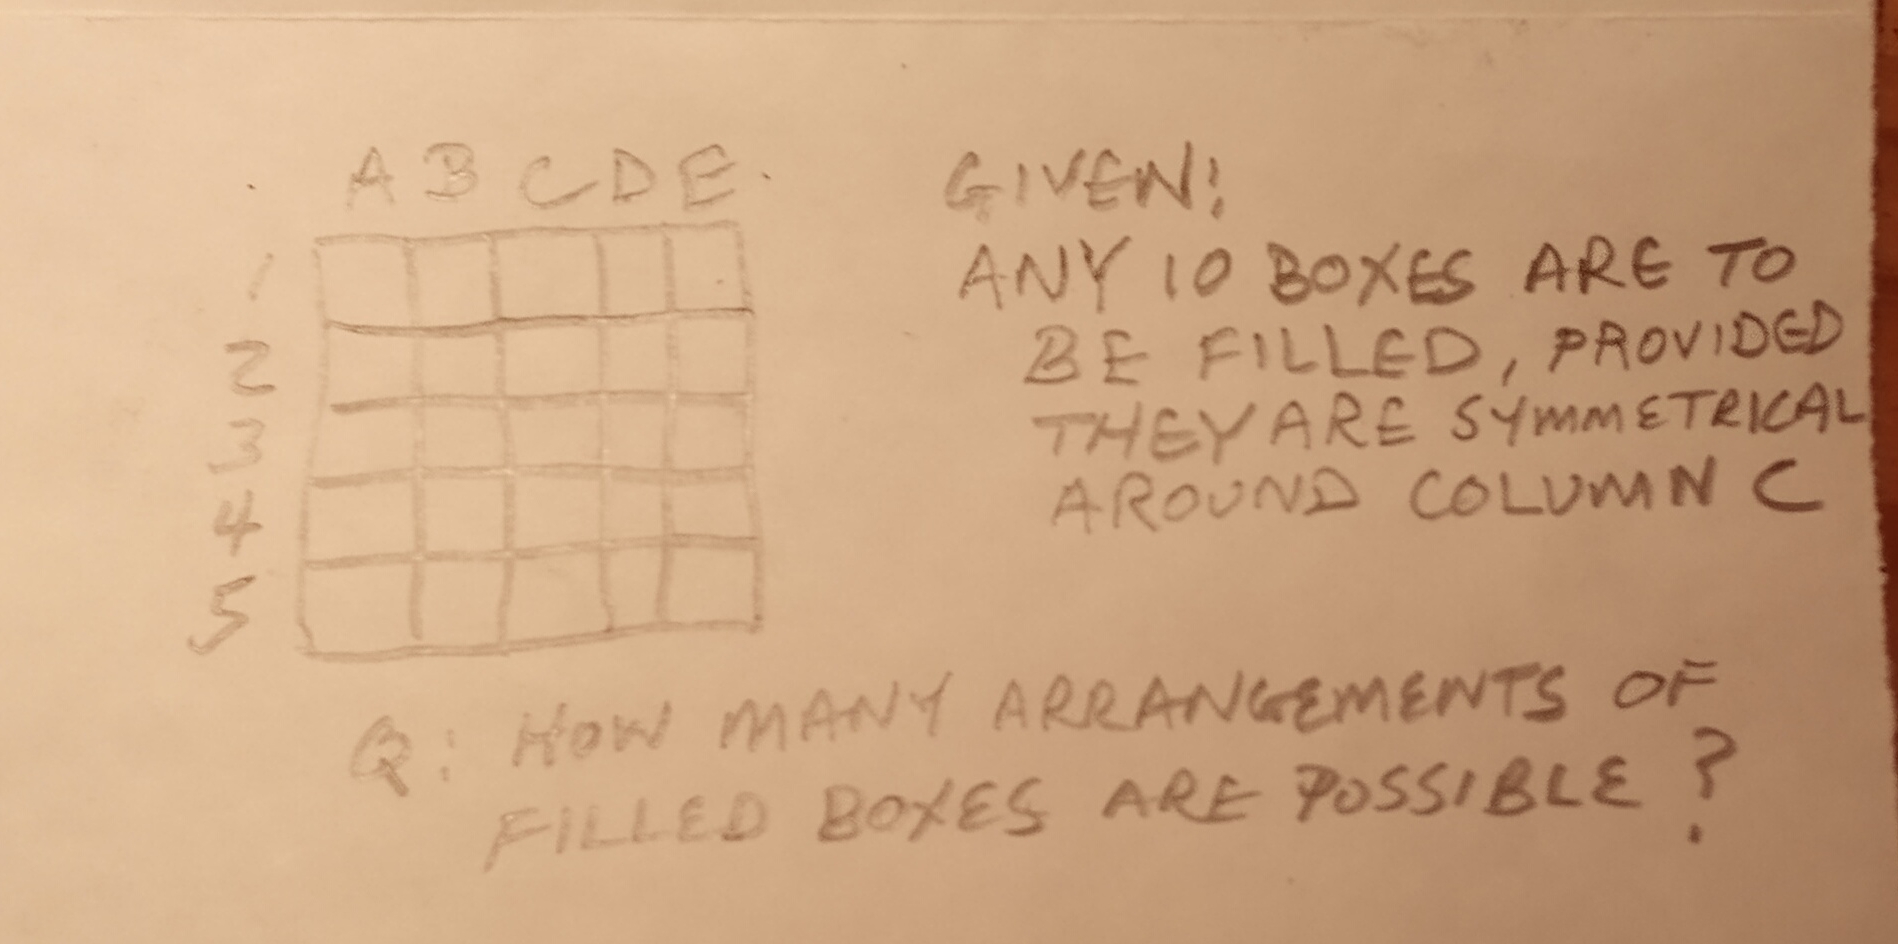 A B C D E
GIVEN:
1
ANY 10 BOXES ARE TO
2
BE FILLED, PROVIDED
3
THEY ARE SYMMETRICAL
4
AROUND COLUMN C
5
Q: HOW MANY ARRANGEMENTS OF
FILLED BOXES ARE POSSIBLE?